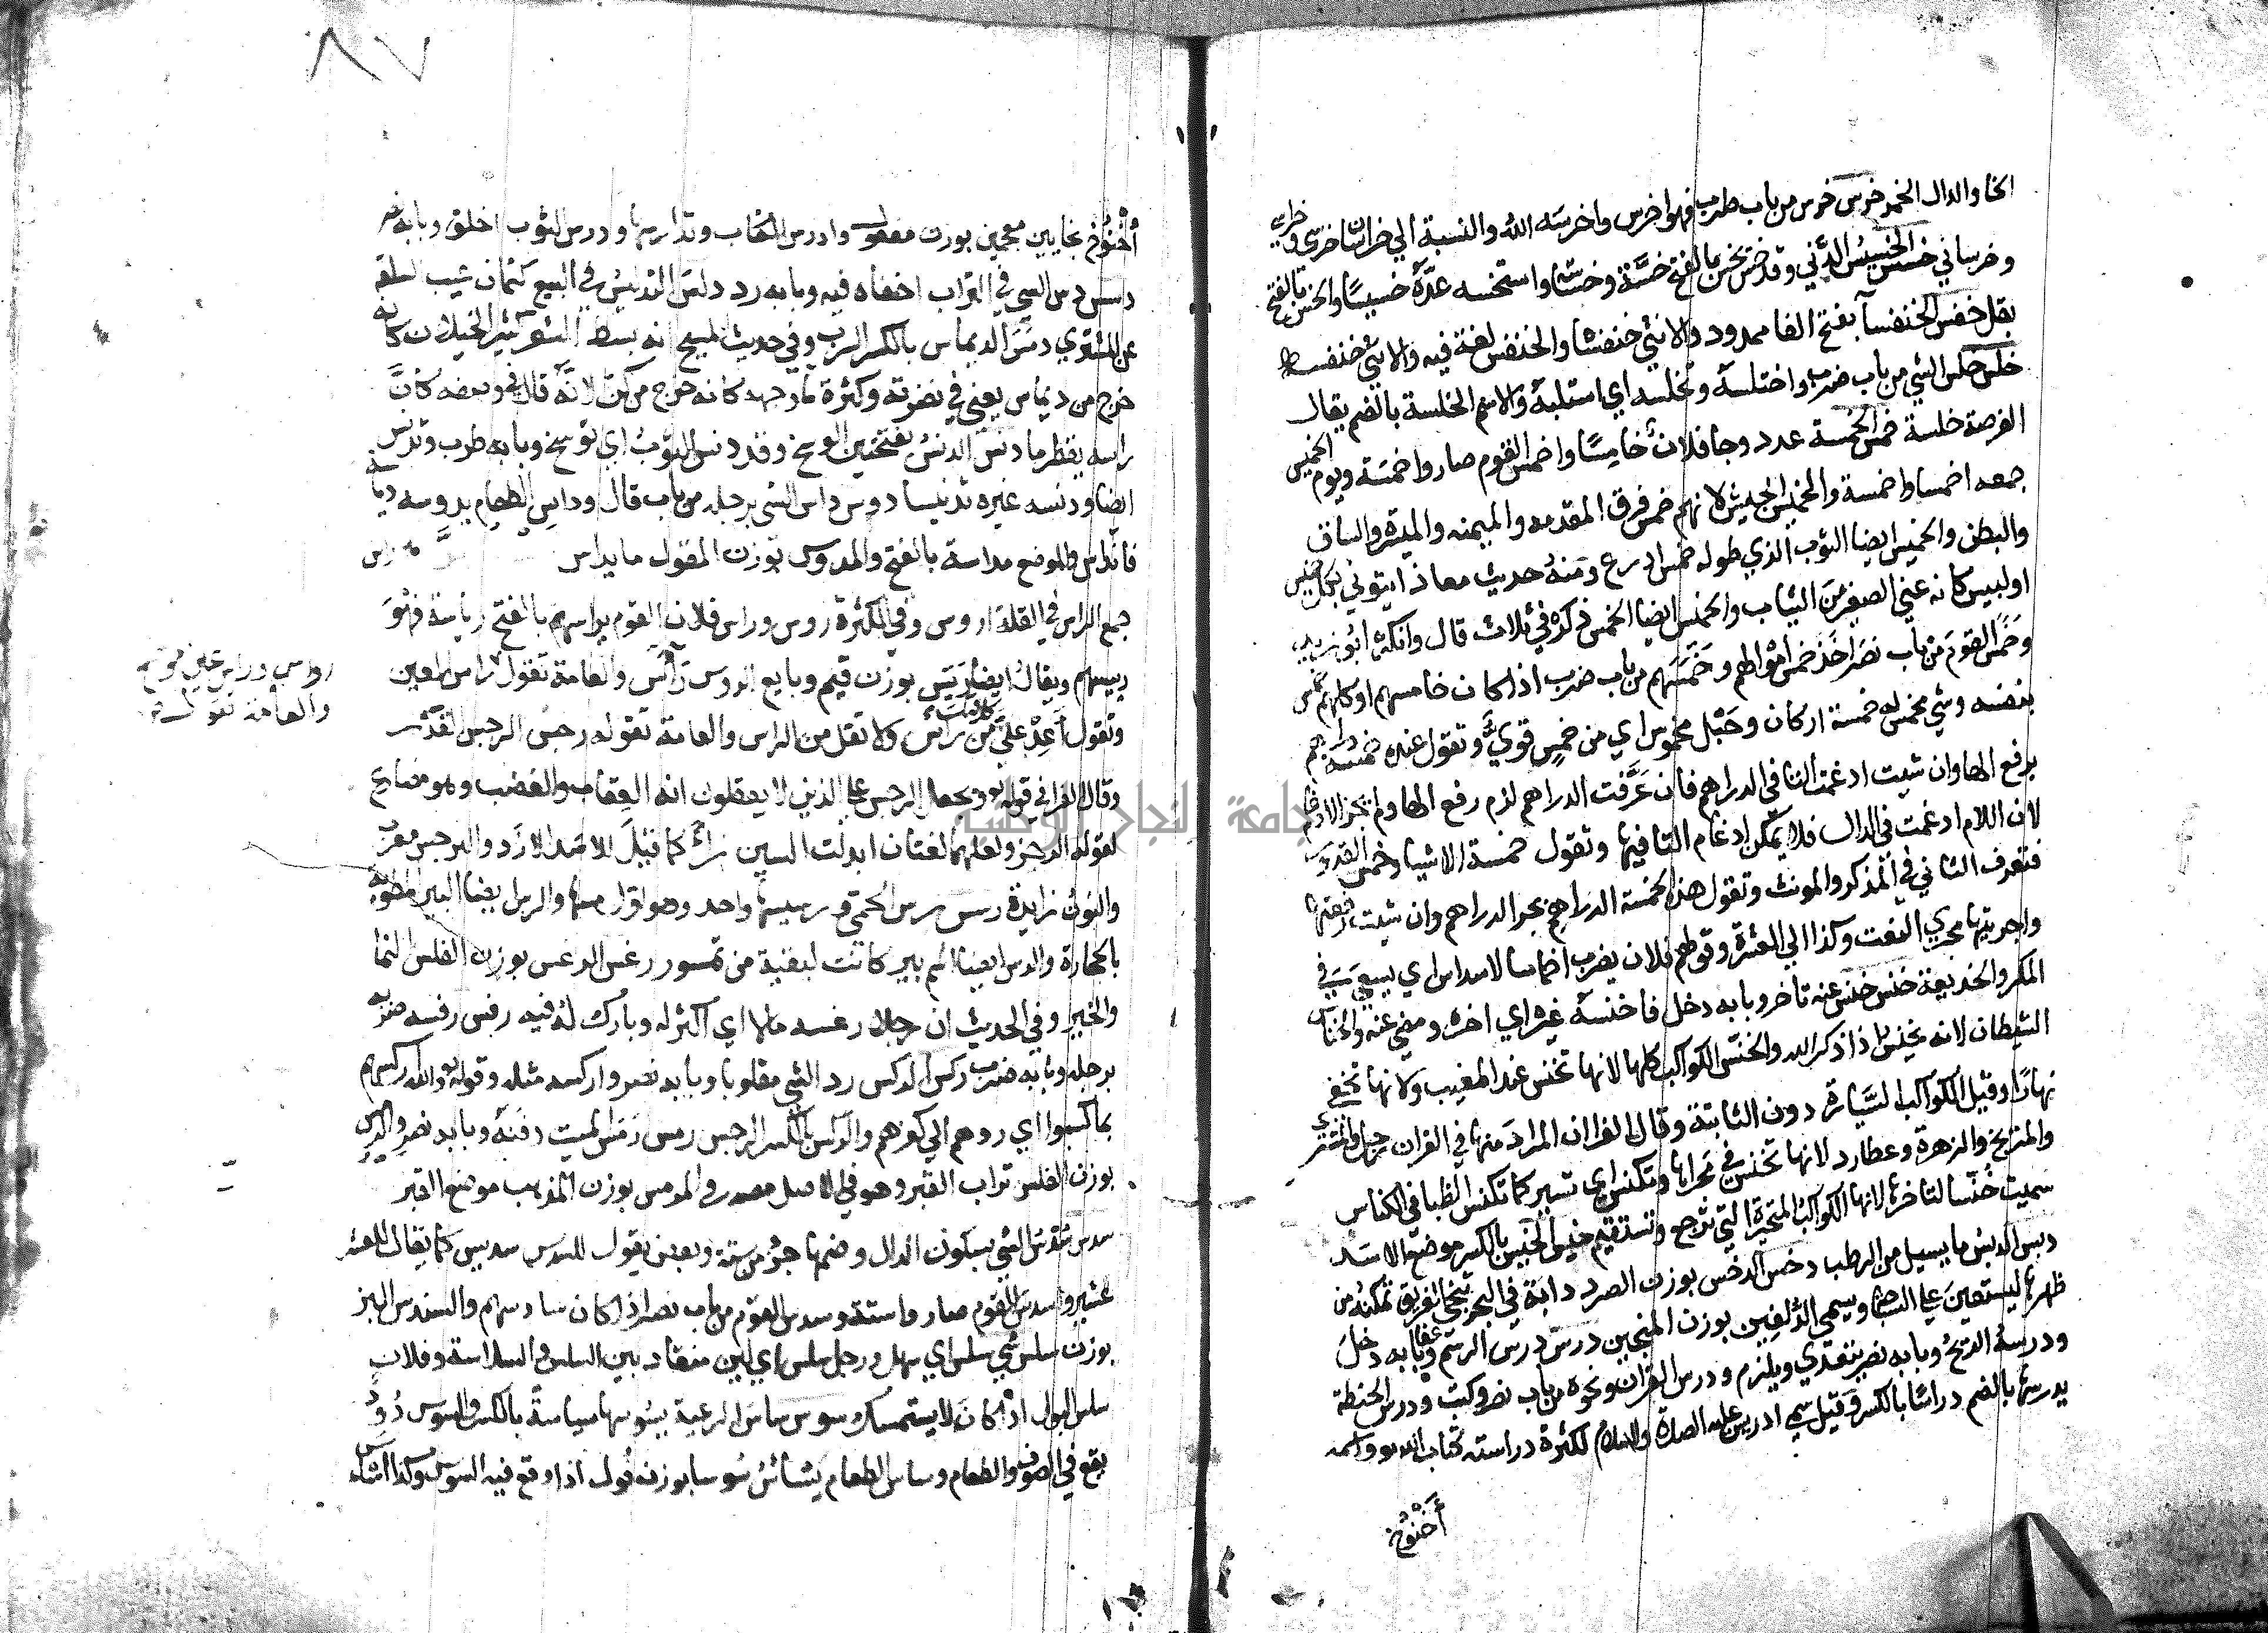 الخا والدال الخمر خرس خرس من باب طرب فهو اخرس واخرسه الله والنسبة الي خراسان خرسي وخراسي
وخرساني خسس الخسيس الدني وقد خس يخس بالفتح خسة وخساسة واستخسه عدّه خسيسا والخس بالفتح
بقل خفس الخنفسآ بفتح الفا ممدود والانثي خنفساة والخنفس لغة فيه والانثي خنفسة
خلس خلس الشي من باب ضرب واختلسه وتخلسه اي استلبه والاسم الخلسة بالضم يقال
الفرصة خلسة خمس الخمسة عدد وجا فلان خامسًا واخمس القوم صاروا خمسة ويوم الخميس
جمعه اخمسا واخمسة والخميس الجيش لانهم خمس فرق المقدمه والميمنه والميسرة والساق
والبطن والخميس ايضا الثوب الذي طوله خمس ادرع ومنه حديث معاذ ايتوني بكل خميس
او لبيس كانه عني الصغير من الثياب والخمس ايضا الخمس ذكره في ثلاث قال وانكره ابو زيد
وخمس القوم من باب نصر اخذ خمس اموالهم وخمسهم من باب ضرب اذا كان خامسهم او كملهم خمس
بنفسه وشي مخمس له خمسة اركان وحبل مخموس اي من خمس قوي وتقول عنده خمسة دراهم
برفع الها وان شيت ادغمت التا في الدراهم فان عرّفت الدراهم لزم رفع الها ولم يجز الادغام
لان اللام ادغمت في الدال فلا يمكن ادغام التا فيها وتقول خمسة الاشيا وخمس القدور
فتعرف الثاني في المذكر والمونث وتقول هذه الخمسة الدراهم بجر الدراهم وان شيت رفعتها
واجريتها مجري النعت وكذا الي العشرة وقولهم فلان يضرب اخماسا لاسداس اي يسعي في
المكر والخديعة خنس خنس عنه تاخر وبابه دخل فاخنسه غيره اي اخره ومضي عنه والخناس
الشيطان لانه يخنس اذا ذكر الله والخنس الكواكب كلها لانها تخنس عند المغيب ولانها تخفي
نهارًا وقيل الكواكب السيّارة دون الثابتة وقال الفرا ان المراد منها في القران زحل والمشتري
والمريخ والزهرة وعطارد لانها تخنس في مجراها وتكنس اي تستر كما تكنس الظبا في الكناس
سميت خُنّسا لتاخرها لانها الكواكب المتحيرة التي ترجع وتستقيم خيس الخيس بالكسر موضع الاسد
دبس الدبس ما يسيل من الرطب دخس الدخس بوزن الصرد دابة في البحر تنجي الغريق تمكنه من
ظهرها ليستعين علي السباحة ويسمي الدلفين بوزن المنجين درس درس الرسم عفا وبابه دخل
ودرسه الريح وبابه نصر يتعدي ويلزم ودرس القران ونحوه من باب نصر وكتب ودرس الحنطة
يدرسها بالضم دراسًا بالكسر وقيل سمي ادريس عليه الصلاة والسلام لكثرة دراسته كتاب الله واسمه
أخنوخ
٨٧
أخنوخ بخايين معجمين بوزن مفعول وادرس الكتاب وتدارسها ودرس الثوب اخلق وبابه نصر
دسس دس الشي في التراب اخفاه فيه وبابه رد دلس التدليس في البيع كتمان عيب السلعة
عن المشتري دمس الديماس بالكسر السرب وفي حديث المسيح انه بسط الشعر كثير الخيلان كانه
خرج من ديماس يعني في نضرته وكثرة ما وجهه كانه خرج من كن لانّه قال في وصفه كانّ
راسه يقطر ما دنس الدنس بفتحتين الوسخ وقد دنس الثوب اي توسخ وبابه طرب وتدنس
ايضا ودنسه غيره تدنيسا دوس داس الشي برجله من باب قال وداس الطعام يدوسه دياسة
فانداس والموضع مداسة بالفتح والمدوس بوزن المقول ما يداس
جمع الراس في القلة اروس وفي الكثرة روس وراس فلان القوم يراسهم بالفتح رياسة فهو
رييسهم ويقال ايضا ريّس بوزن قيم وبايع الروس رآس والعامة تقول رواس وراس العين
وتقول أعد عليّ كلامك من راس ولا تقل من الراس والعامة تقوله رجس الرجس القذر
وقال الفرا في قوله ويجعل الرجس علي الذين لا يعقلون انه العقاب والغضب وهو مضارع
لقوله الرجز ولعلهما لغتان ابدلت السين زاءً كما قيل للاسد الازد والنرجس معرب
والنون زايدة رسس رس الحمي ورسيسها واحد وهو اول مسها والرس ايضا البير المطوية
بالحجارة والرس ايضا اسم بير كانت لبقية من ثمود رغس الرغس بوزن الفلس النما
والخير وفي الحديث ان رجلا رغسه مالا اي اكثر له وبارك له فيه رفس رفسه ضربه
برجله وبابه ضرب ركس الركس رد الشي مقلوبا وبابه نصر واركسه مثله وقوله والله اركسهم
بما كسبوا اي ردهم الي كفرهم والركس بالكسر الرجس رمس رمس الميت دفنه وبابه نصر والرمس
بوزن الفلس تراب القبر وهو في الاصل مصدر والمرمس بوزن المذهب موضع القبر
سدس سُدس الشي بسكون الدال وضمها جزو من ستة وبعض يقول للسدس سديس كما يقال للعشر
عشير واسدس القوم صاروا ستة وسدس القوم من باب نصر اذا كان سادسهم والسندس البز
بوزن سلس شي سلس اي سهل ورجل سلس اي لين منقاد بين السلس والسلاسة وفلان
سلس البول اذا كان لا يستمسك سوس ساس الرعية يسوسها سياسةً بالكسر والسوس دود
يقع في الصوف والطعام وساس الطعام يساس سوسا بوزن قول اذا وقع فيه السوس وكذا اساس
رواس وراس عين موضع
والعامة تقول
جامعة النجاح الوطنية